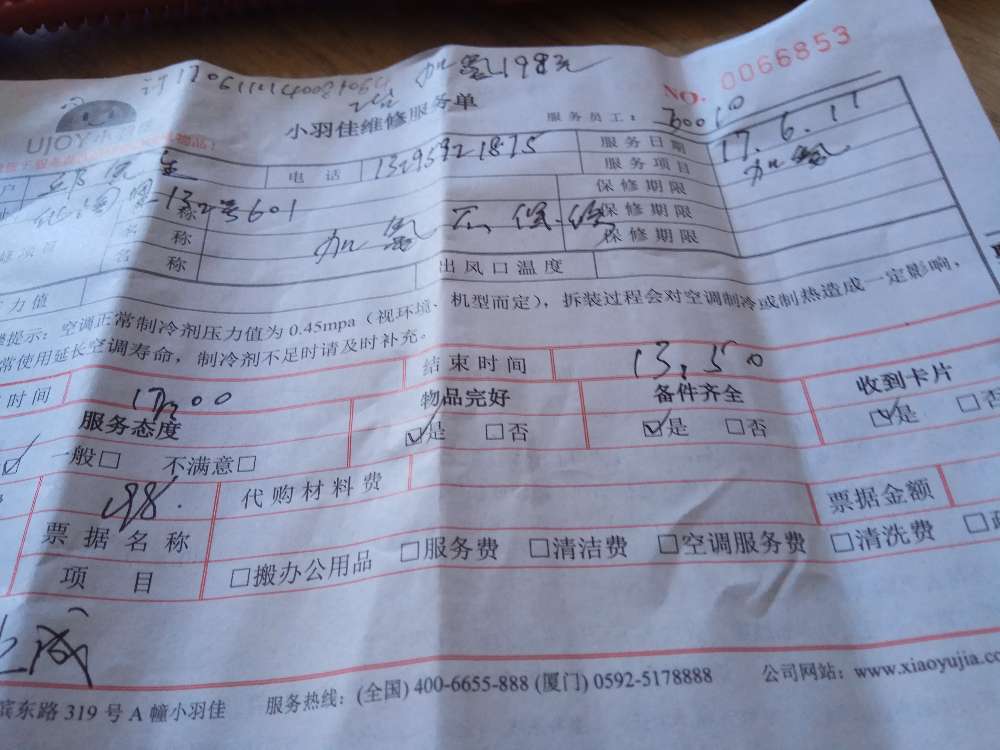 加氟198元
NO. 0066853
UJOY小羽佳
小羽佳维修服务单
服务员工：
户 电话 服务日期 17.6.11
服务项目 加氟
132号601
称 保修期限
名称 加氟不保修 保修期限
名称 保修期限
力值 出风口温度
提示：空调正常制冷剂压力值为0.45mpa（视环境、机型而定），拆装过程会对空调制冷或制热造成一定影响，
常使用延长空调寿命，制冷剂不足时请及时补充。
时间 结束时间 13:50
服务态度 物品完好 备件齐全 收到卡片
一般□ 不满意□ ☑是 □否 ☑是 □否 ☑是 □否
198. 代购材料费 票据金额
票据名称
项目 □搬办公用品 □服务费 □清洁费 □空调服务费 □清洗费
滨东路319号A幢小羽佳 服务热线：(全国) 400-6655-888 (厦门) 0592-5178888 公司网站：www.xiaoyujia.co